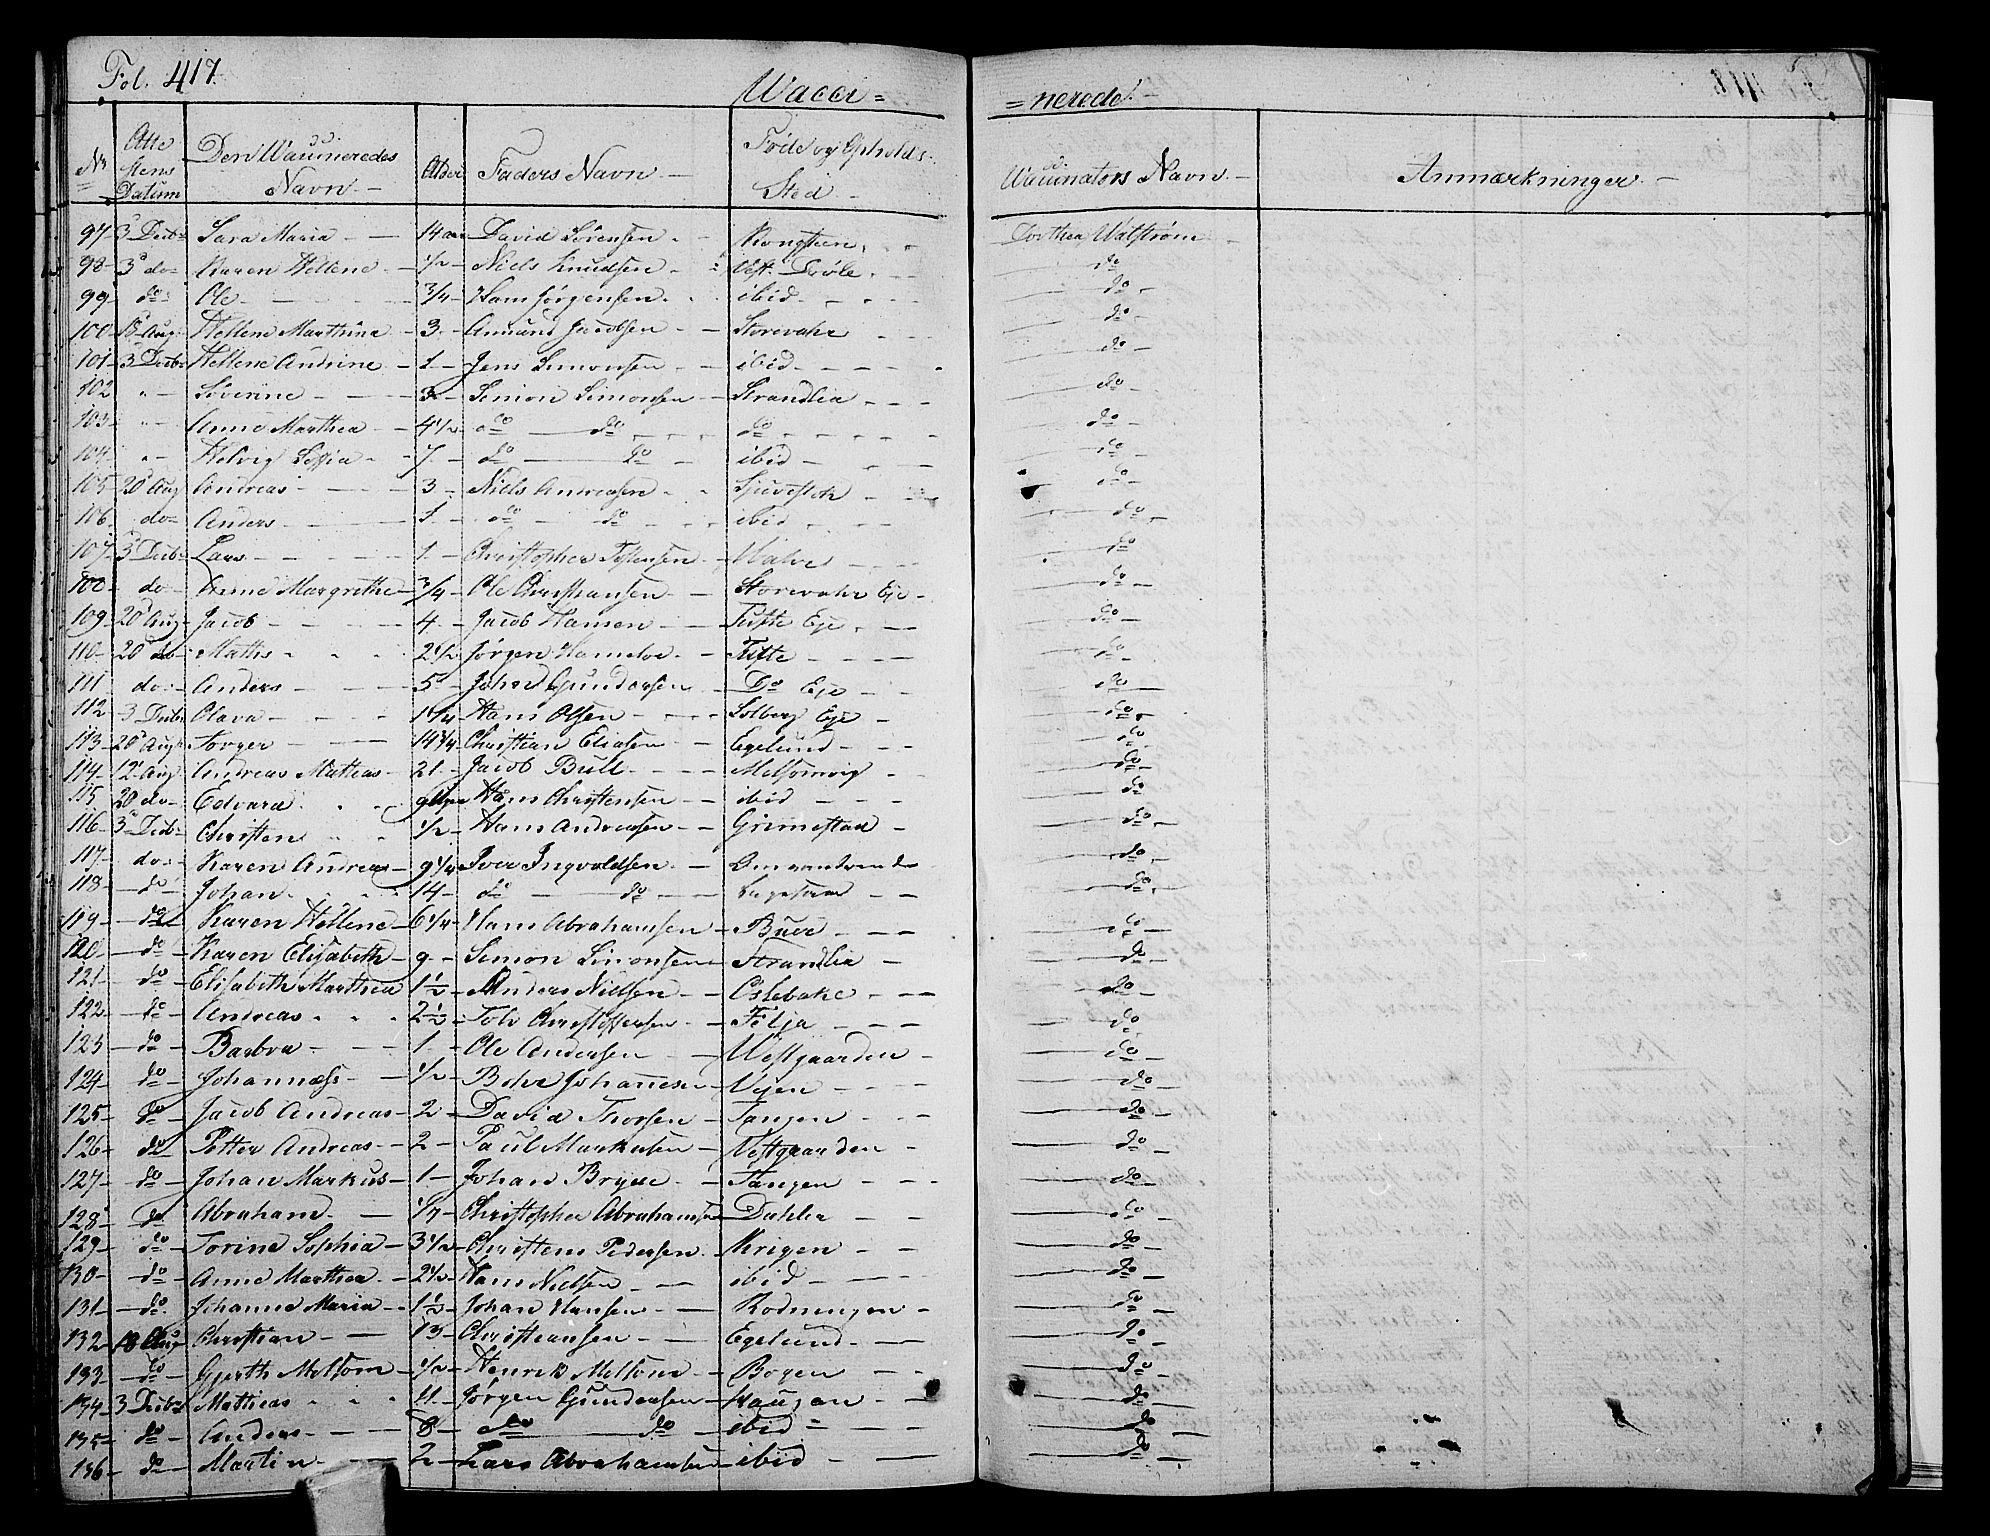 Fol. 417.
Wacci=
=nerede.
Nr
Atte
stens
Datum
Den Waccineredes
Navn
Alder
Faders Navn
Føde og Opholds
Sted
Waccinators Navn
Anmærkninger
97 3 Decbr Sara Maria 14 David Sørensen Dorthea
98 3 do Karen Hellene 1/2 Niels Knudsen do
99 do Ole 3/4 Hans Jørgensen ibid do
100 18 Aug Hellene Marthine 3 Amund Jacobsen Storevahr do
101 3 Decbr Hellene Andrine 1 Jens Simonsen ibid do
102 " Søverine 3 Simon Simonsen Strandlia do
103 " Anne Marthea 4 1/2 do do do do
104 " Helvig Soffia 7 do do ibid do
105 20 Aug Andreas 3 Niels Andreasen do
106 do Anders 1 do do ibid do
107 3 Decbr Lars 1 Christopher do
108 do Anne Margrethe 3/4 Ole Christiansen Storevahr Eje do
109 20 Aug Jacob 4 Jacob Hansen Tufte Eje do
110 20 do Mathis 2 1/2 Jørgen Tufte do
111 do Anders 5 Johan Gundersen Do Eje do
112 3 Decbr Olava 1 1/4 Hans Olsen Solberg Eje do
113 20 Aug Torger 14 3/4 Christian Eliasen Egelund do
114 12 Aug Andreas Mathias 21 Jacob Bull Melsomvig do
115 20 do Edvard Hans Christensen ibid do
116 3 Decbr Christen 1/2 Hans Andreasen Grimestad do
117 do Karen Andrea 9 1/4 Iver Ingvoldsen Omvantrende do
118 do Johan 14 do do do
119 do Karen Hellene 6 1/4 Hans Abrahamsen Bue do
120 do Karen Elisabeth 9 Simon Simonsen Strandlia do
121 do Elisabeth Marthea 1 1/2 Anders Nielsen Oslebake do
122 do Andreas 2 1/2 Christoffersen do
123 do Barbra 1 Ole Andersen Westgaarden do
124 do Johannæss 1/2 Johannesen Vejen do
125 do Jacob Andreas 2 David Thorsen Tangen do
126 do Petter Andreas 2 Paul Markusen Vestgaarden do
127 do Johan Markus 1 Johan Bryse Tangen do
128 do Abraham Christopher Abrahamsen Dahler do
129 do Torine Sophia 3 1/2 Christen Pedersen Krigen do
130 do Anne Marthea 2 1/2 Hans Nielsen ibid do
131 do Johanne Maria 1 1/2 Johan Hansen Rodningen do
132 18 Aug Christian 13 Christiansen Egelund do
133 do Gjerth Melsom 1/2 Henrik Melsom Bogen do
134 3 Decbr Mathias 11 Jørgen Gundersen Haugan do
135 do Anders 8 do do ibid do
136 do Martin 2 Lars Abrahamsen ibid do